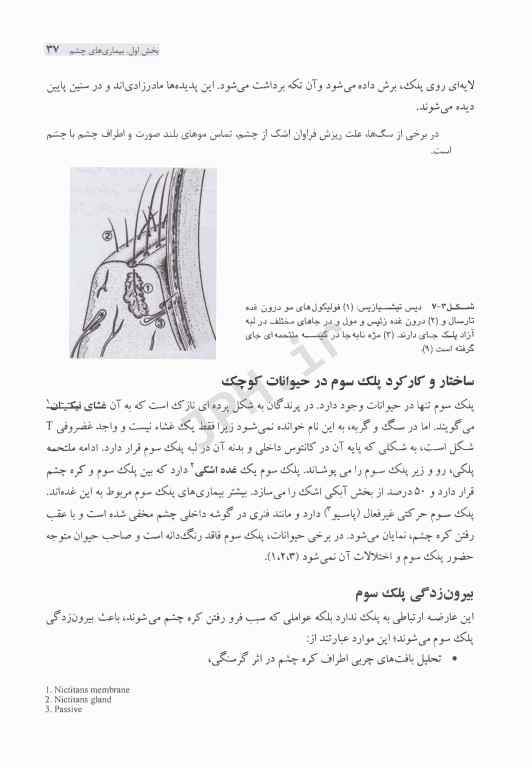 بخش اول. بیماری‌های چشم ۳۷
لایه‌ای روی پلک، برش داده می‌شود و آن تکه برداشت می‌شود. این پدیده‌ها مادرزادی‌اند و در سنین پایین
دیده می‌شوند.
در برخی از سگ‌ها، علت ریزش فراوان اشک از چشم، تماس موهای بلند صورت و اطراف چشم با چشم
است.
۲
۱
۳
شکل۳-۷ دیس تیشیازیس: (۱) فولیکول‌های مو درون غده
تارسال و (۲) درون غده زئیس و مول و در جاهای مختلف در لبه
آزاد پلک جای دارند. (۳) مژه نابه‌جا در کیسه ملتحمه‌ای جای
گرفته است (۹).
ساختار و کارکرد پلک سوم در حیوانات کوچک
پلک سوم تنها در حیوانات وجود دارد. در پرندگان به شکل پرده ای نازک است که به آن غشای نیکتیتان۱
می‌گویند. اما در سگ و گربه، به این نام خوانده نمی‌شود زیرا فقط یک غشاء نیست و واجد غضروفی T
شکل است، به شکلی که پایه آن در کانتوس داخلی و بدنه آن در لبه پلک سوم قرار دارد. ادامه ملتحمه
پلکی، رو و زیر پلک سوم را می پوشاند. پلک سوم یک غده اشکی۲ دارد که بین پلک سوم و کره چشم
قرار دارد و ۵۰ درصد از بخش آبکی اشک را می‌سازد. بیشتر بیماری‌های پلک سوم مربوط به این غده‌اند.
پلک سوم حرکتی غیرفعال (پاسیو۳) دارد و مانند فنری در گوشه داخلی چشم مخفی شده است و با عقب
رفتن کره چشم، نمایان می‌شود. در برخی حیوانات، پلک سوم فاقد رنگ‌دانه است و صاحب حیوان متوجه
حضور پلک سوم و اختلالات آن نمی‌شود (۱،۲،۳).
بیرون‌زدگی پلک سوم
این عارضه ارتباطی به پلک ندارد بلکه عواملی که سبب فرو رفتن کره چشم می‌شوند، باعث بیرون‌زدگی
پلک سوم می‌شوند؛ این موارد عبارتند از:
• تحلیل بافت‌های چربی اطراف کره چشم در اثر گرسنگی،
1. Nictitans membrane
2. Nictitans gland
3. Passive
JPH.ir